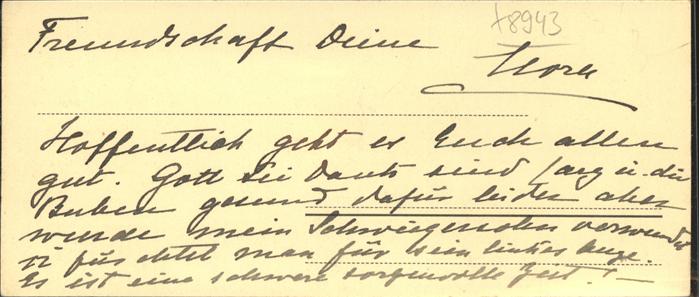 +8943
Freundschaft Deine
Nora
Hoffentlich geht es Euch allen
gut. Gott sei Dank sind u. die
Buben gesund dafür leider aber
wurde mein Schwiegersohn verwundet
u. fürchtet man für sein linkes Auge.
Es ist eine schwere sorgenvolle Zeit! –